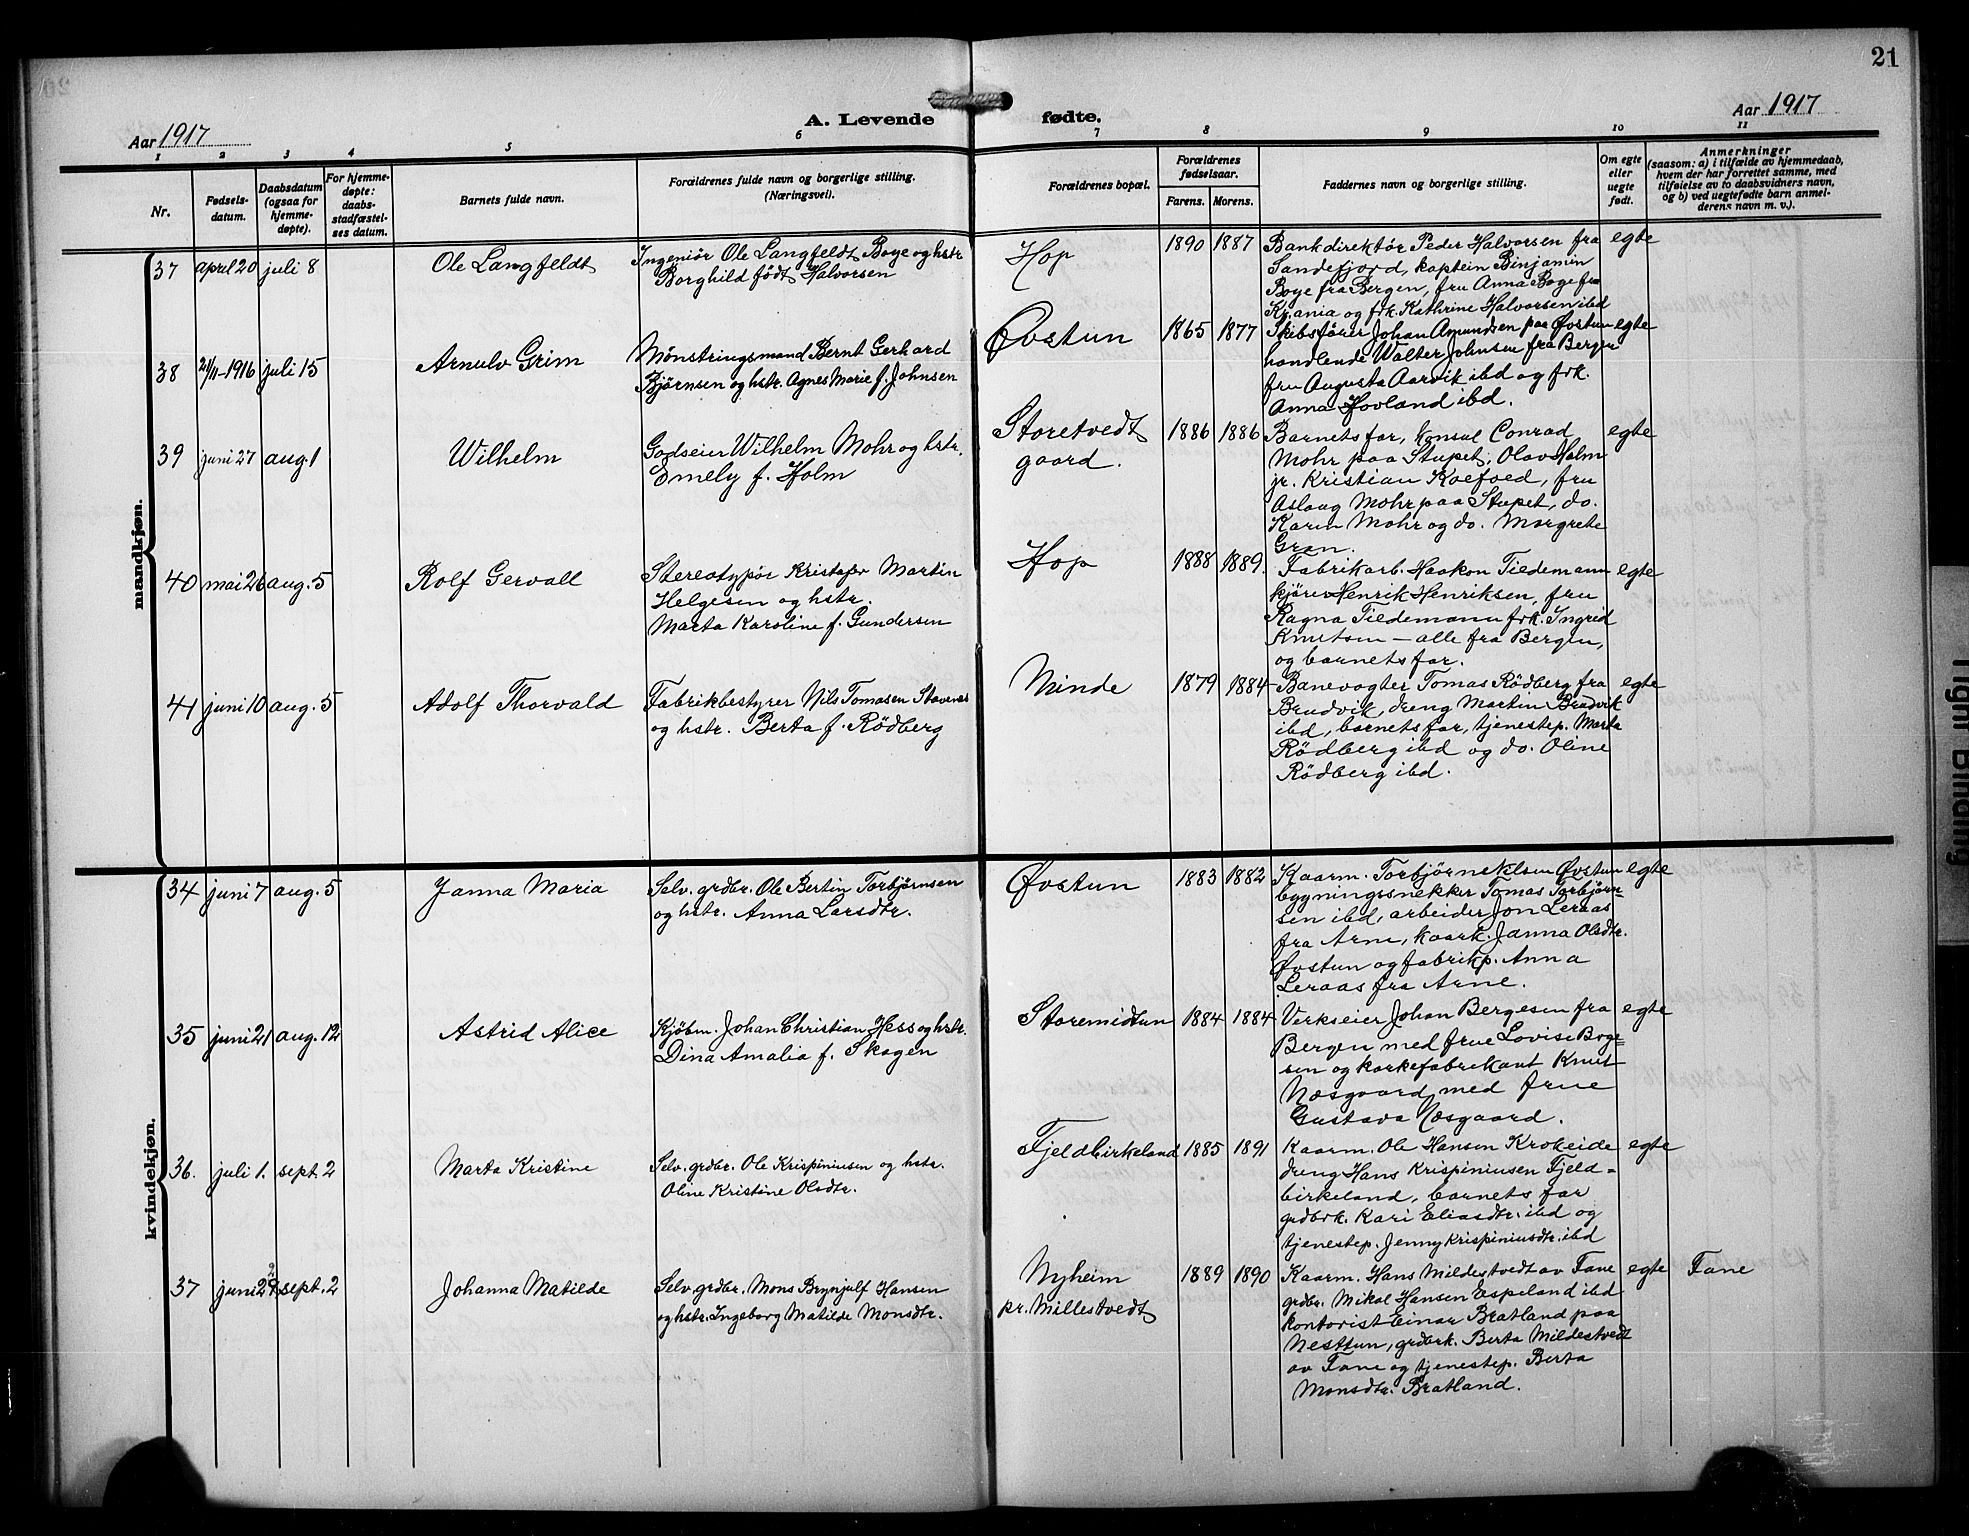 21
Aar 1917
A. Levende fødte.
Aar 1917
1 2 3 4 5 6 7 8 9 10 11
Nr.
Fødsels-
datum.
Daabsdatum
(ogsaa for
hjemme-
døpte).
For hjemme-
døpte:
daabs-
stadfæstel-
ses datum.
Barnets fulde navn.
Forældrenes fulde navn og borgerlige stilling.
(Næringsvei).
Forældrenes bopæl.
Forældrenes
fødselsaar.
Farens. Morens.
Faddernes navn og borgerlige stilling.
Om egte
eller
uegte
født.
Anmerkninger
(saasom: a) i tilfælde av hjemmedaab,
hvem der har forrettet samme, med
tilføielse av to daabsvidners navn,
og b) ved uegtefødte barn anmel-
derens navn m. v.).
mandkjøn.
37 april 20 juli 8
Ole Langfeldt
Ingeniør Ole Langfeldt Boye og hstr.
Borghild født Halvorsen
Hop
1890 1887
Bankdirektør Peder Halvorsen fra
Sandefjord, kaptein Binjamin
Boye fra Bergen, fru Anna Boye fra
Kr.ania og frk. Kathrine Halvorsen ibd
egte
38 21/11-1916 juli 15
Arnulv Grim
Mønstringsmand Bernt Gerhard
Bjørnsen og hstr. Agnes Marie f. Johnsen
Øvstun
1865 1877
Skibsfører Johan Amundsen paa Øvstun
handlende Walter Johnsen fra Bergen
fru Augusta Aarvik ibd og frk.
Anna Hovland ibd.
egte
39 juni 27 aug. 1
Wilhelm
Godseier Wilhelm Mohr og hstr.
Emely f. Holm
Storetvedt
gaard.
1886 1886
Barnets far, konsul Conrad
Mohr paa Stupet, Olav Holm
jr. Kristian Koefoed, fru
Aslaug Mohr paa Stupet, do.
Karen Mohr og do. Margrete
Gran.
egte
40 mai 26 aug. 5
Rolf Gervall
Stereotypør Kristofer Martin
Helgesen og hstr.
Marta Karoline f. Gundersen
Hop
1888 1889.
Fabrikarb. Haakon Tiedemann
kjører Henrik Henriksen, fru
Ragna Tiedemann frk. Ingrid
Knutsen – alle fra Bergen,
og barnets far.
egte
41 juni 10 aug. 5
Adolf Thorvald
Fabrikbestyrer Nils Tomasen Stavenes
og hstr. Berta f. Rødberg
Minde
1879 1884
Banevogter Tomas Rødberg fra
Brudvik, dreng Martin Brudvik
ibd, barnets far, tjenestep. Marta
Rødberg ibd og do. Oline
Rødberg ibd.
egte
kvindekjøn.
34 juni 7 aug. 5
Janna Maria
Selv. grdbr. Ole Bertin Torbjørnsen
og hstr. Anna Larsdtr.
Øvstun
1883 1882
Kaarm. Torbjørn Nilsen Øvstun
bygningssnekker Tomas Torbjørn-
sen ibd, arbeider Jon Leraas
fra Arne, kaark. Janna Olsdtr.
Øvstun og fabrikp. Anna
Leraas fra Arne.
egte
35 juni 21 aug. 12
Astrid Alice
Kjøbm. Johan Christian Hess og hstr.
Dina Amalia f. Skagen
Storemidtun
1884 1884
Verkseier Johan Bergesen fra
Bergen med frue Lovise Berge=
sen og korkefabrikant Knut
Næsgaard med frue
Gustava Næsgaard.
egte
36. juli 1. sept. 2
Marta Kristine
Selv. grdbr. Ole Krispiniusen og hstr.
Oline Kristine Olsdtr.
Fjeldbirkeland
1885 1891
Kaarm. Ole Hansen Krokeide
dreng Hans Krispiniusen Fjeld=
birkeland, barnets far
grdbrk. Kari Eliasdtr. ibd og
tjenestep. Jenny Krispiniusdtr. ibd
egte
37 juni 29 sept. 2
Johanna Matilde
Selv. grdbr. Mons Brynjulf Hansen
og hstr. Ingeborg Matilde Monsdtr.
Nyheim
pr. Millestvedt
1889 1890
Kaarm. Hans Mildestvedt av Fane
grdbr. Mikal Hansen Espeland ibd
kontorist Einar Bratland paa
Nesttun, grdbrk. Berta Mildestvedt
av Fane og tjenestep. Berta
Monsdtr. Bratland.
egte
Fane
Tight Binding